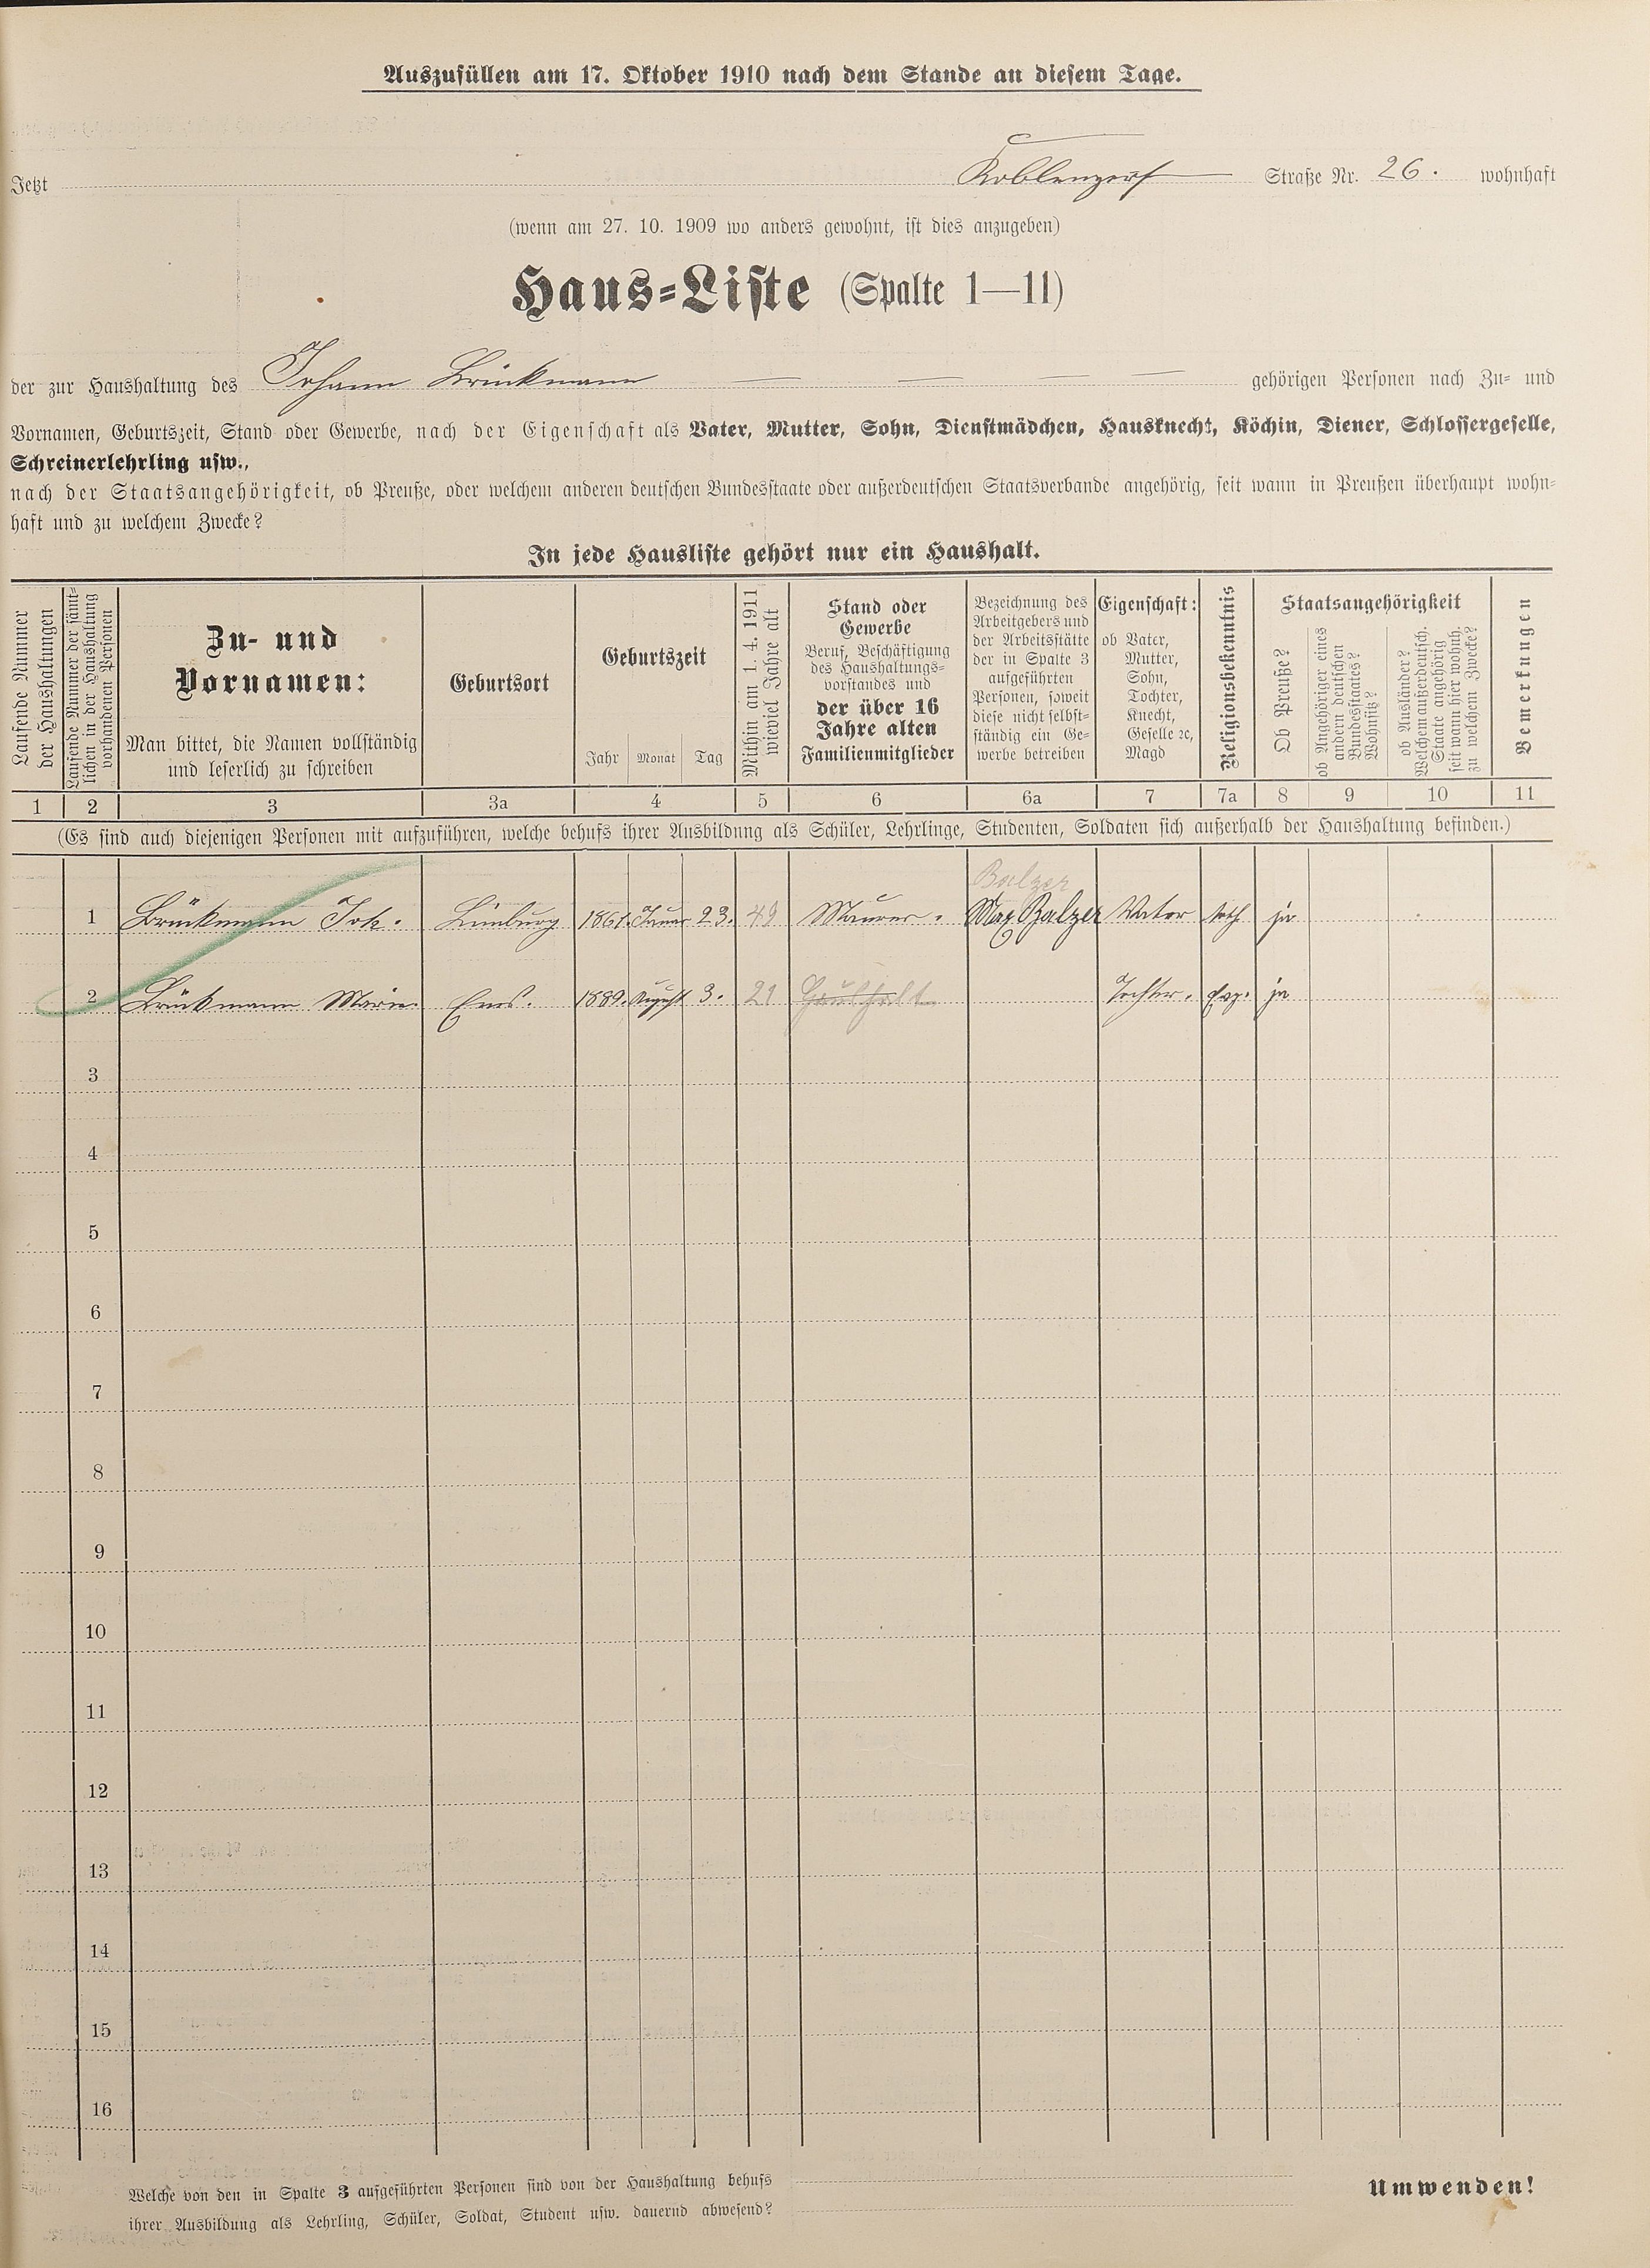 Auszufüllen am 17. Oktober 1910 nach dem Stande an diesem Tage.
Jetzt Koblenzer Straße Nr. 26. wohnhaft
(wenn am 27. 10. 1909 wo anders gewohnt, ist dies anzugeben)
Haus-Liste (Spalte 1—11)
der zur Haushaltung des Johann Brückmann gehörigen Personen nach Zu- und
Vornamen, Geburtszeit, Stand oder Gewerbe, nach der Eigenschaft als Vater, Mutter, Sohn, Dienstmädchen, Hausknecht, Köchin, Diener, Schlossergeselle,
Schreinerlehrling usw.,
nach der Staatsangehörigkeit, ob Preuße, oder welchem anderen deutschen Bundesstaate oder außerdeutschen Staatsverbande angehörig, seit wann in Preußen überhaupt wohn-
haft und zu welchem Zwecke?
In jede Hausliste gehört nur ein Haushalt.
Laufende Nummer
der Haushaltungen
Laufende Nummer der sämt-
lichen in der Haushaltung
vorhandenen Personen
Zu- und
Vornamen:
Man bittet, die Namen vollständig
und leserlich zu schreiben
Geburtsort
Geburtszeit
Jahr Monat Tag
Mithin am 1. 4. 1911
wieviel Jahre alt
Stand oder
Gewerbe
Beruf, Beschäftigung
des Haushaltungs-
vorstandes und
der über 16
Jahre alten
Familienmitglieder
Bezeichnung des
Arbeitgebers und
der Arbeitsstätte
der in Spalte 3
aufgeführten
Personen, soweit
diese nicht selbst-
ständig ein Ge-
werbe betreiben
Eigenschaft:
ob Vater,
Mutter,
Sohn,
Tochter,
Knecht,
Geselle ꝛc,
Magd
Religionsbekenntnis
Staatsangehörigkeit
Ob Preuße?
ob Angehöriger eines
andern deutschen
Bundesstaates?
Wohnsitz?
ob Ausländer?
Welchem außerdeutsch.
Staate angehörig
seit wann hier wohnh.
zu welchem Zwecke?
Bemerkungen
1 2 3 3a 4 5 6 6a 7 7a 8 9 10 11
(Es sind auch diejenigen Personen mit aufzuführen, welche behufs ihrer Ausbildung als Schüler, Lehrlinge, Studenten, Soldaten sich außerhalb der Haushaltung befinden.)
Balzer
1 Brückmann Joh. Limburg 1861. Januar 23. 49 Maurer. Max Balzer Vater kath. ja
2 Brückmann Marie Ems. 1889. August 3. 21 Haushalt Tochter. Evg. ja
3
4
5
6
7
8
9
10
11
12
13
14
15
16
Welche von den in Spalte 3 aufgeführten Personen sind von der Haushaltung behufs
ihrer Ausbildung als Lehrling, Schüler, Soldat, Student usw. dauernd abwesend?
Umwenden!